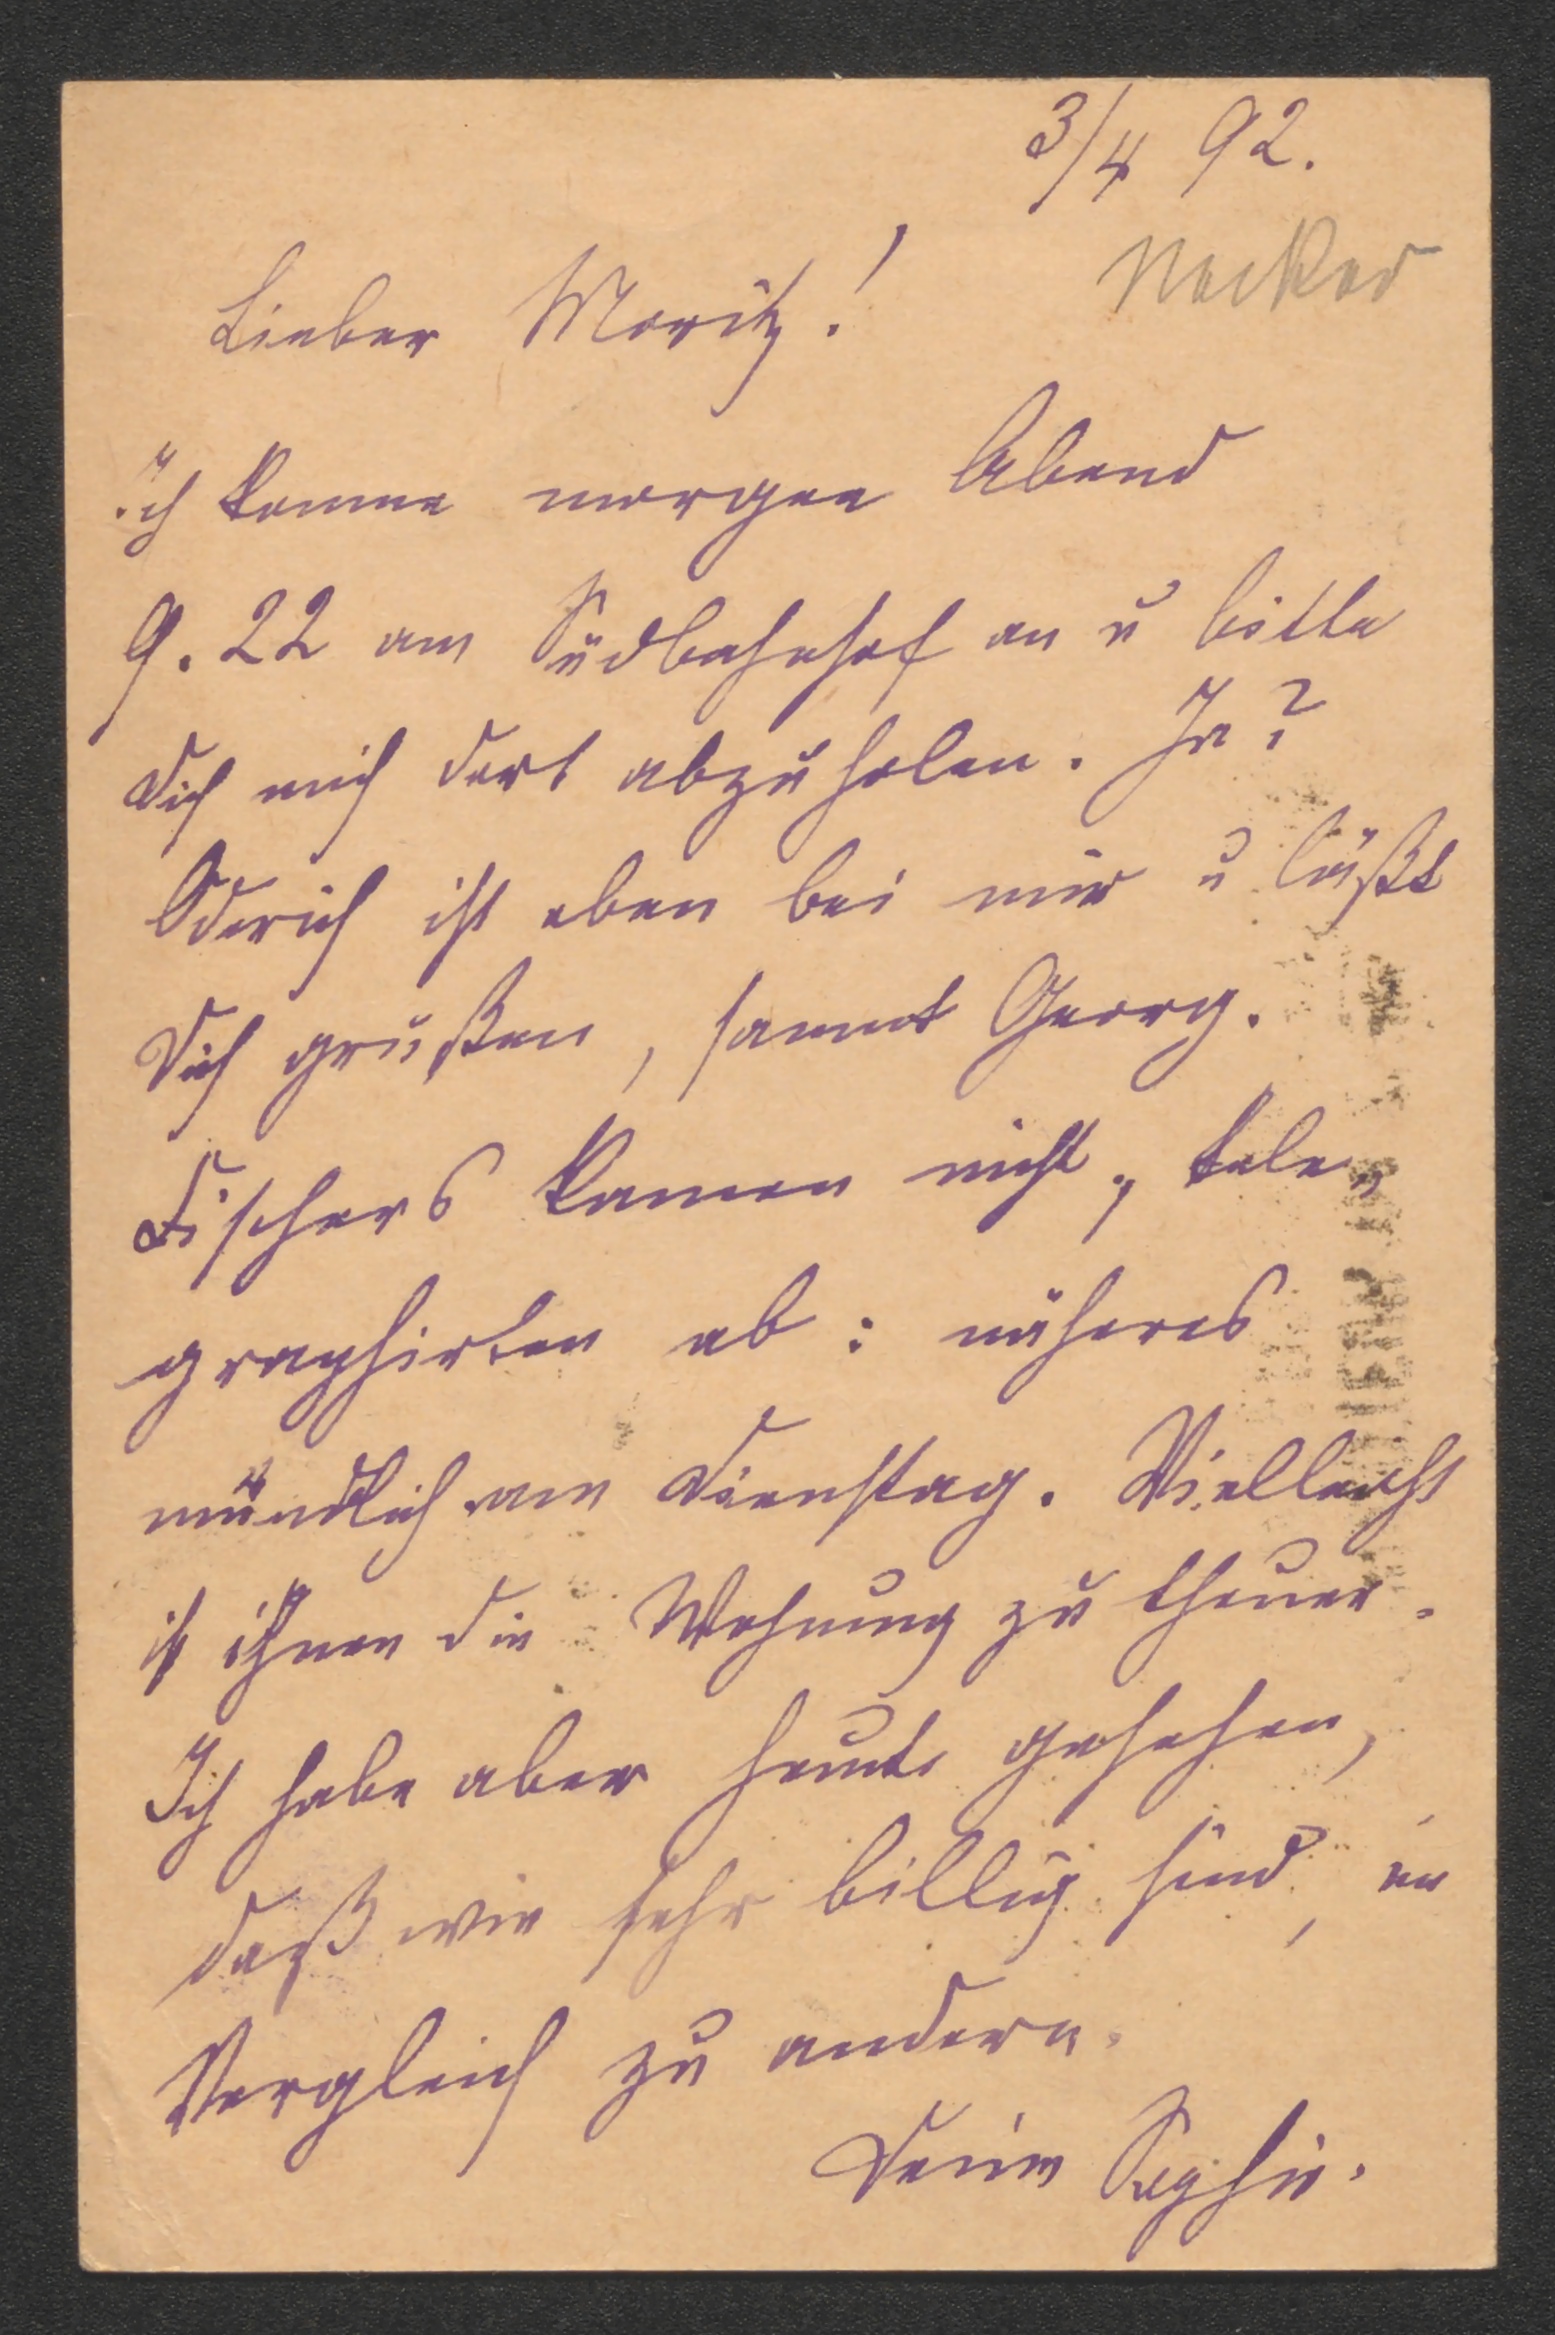 3/4 92.
Necker
Lieber Moritz!
Ich komme morgen Abend
9.22 am Südbahnhof an u bitte
Dich mich dort abzuholen. Ja?
ist eben bei mir u läßt
Dich grüßen, sammt Georg.
Fischers kamen nicht, tele-
graphirten ab: näheres
mündlich am Dienstag. Vielleicht
ist ihnen die Wohnung zu theuer.
Ich habe aber heute gesehen,
daß wir sehr billig sind, im
Vergleich zu andern.
Deine Sophie.